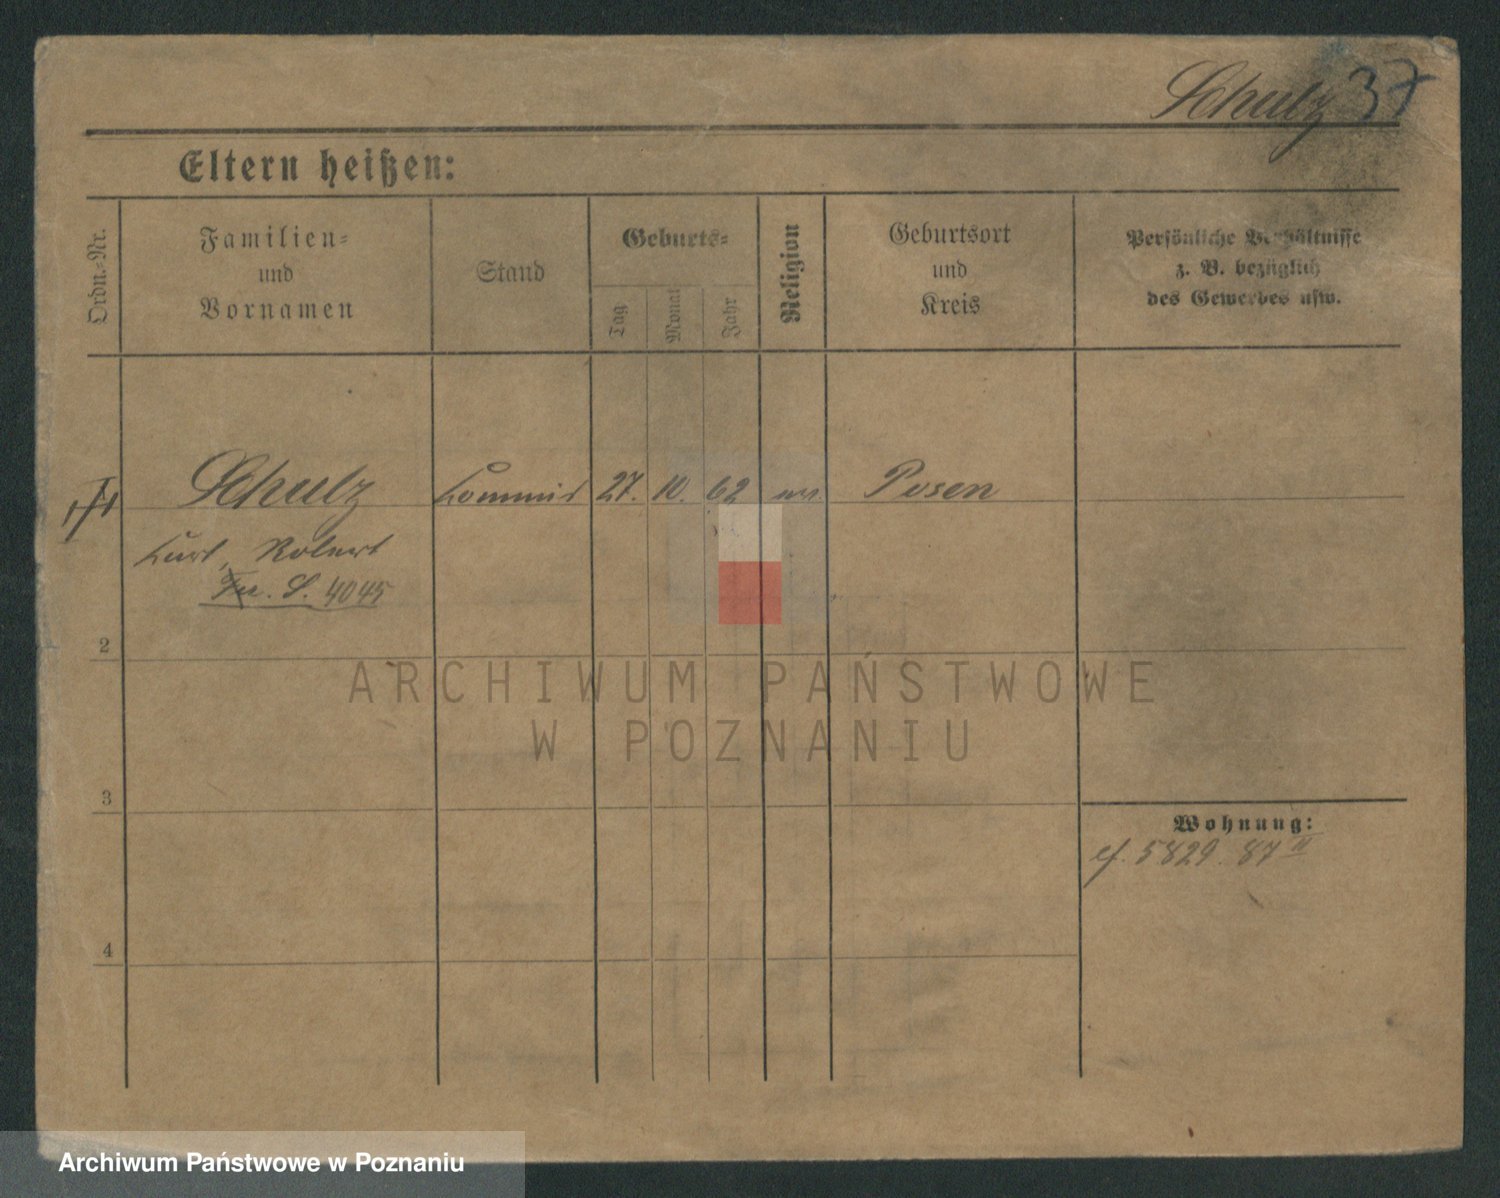 Schulz 37
Eltern heißen:
Ordn.-Nr.
Familien-
und
Vornamen
Stand
Geburts-
Tag
Monat
Jahr
Religion
Geburtsort
und
Kreis
Persönliche Verhältnisse
z. B. bezüglich
des Gewerbes usw.
Schulz 27. 10. 62 Posen
Kurt, Robert
S. 4045
2
3
4
Wohnung:
cf. 5829. 87 II
ARCHIWUM PAŃSTWOWE
W POZNANIU
Archiwum Państwowe w Poznaniu